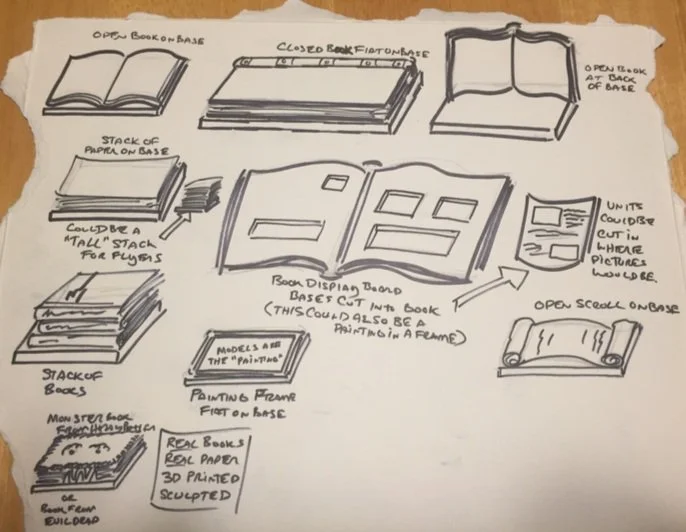 OPEN BOOK ON BASE
CLOSED BOOK FLAT ON BASE
OPEN BOOK
AT BACK
OF BASE
STACK OF
PAPER ON BASE
COULD BE A
"TALL" STACK
FOR FLYERS
UNITS
COULD BE
CUT IN
WHERE
PICTURES
WOULD BE.
BOOK DISPLAY BOARD
BASES CUT INTO BOOK
(THIS COULD ALSO BE A
PAINTING IN A FRAME)
OPEN SCROLL ON BASE
STACK OF
BOOKS
MODELS ARE
THE "PAINTING"
PAINTING FRAME
FLAT ON BASE
MONSTER BOOK
FROM HARRY POTTER
OR
BOOK FROM
EVIL DEAD
REAL BOOKS
REAL PAPER
3D PRINTED
SCULPTED